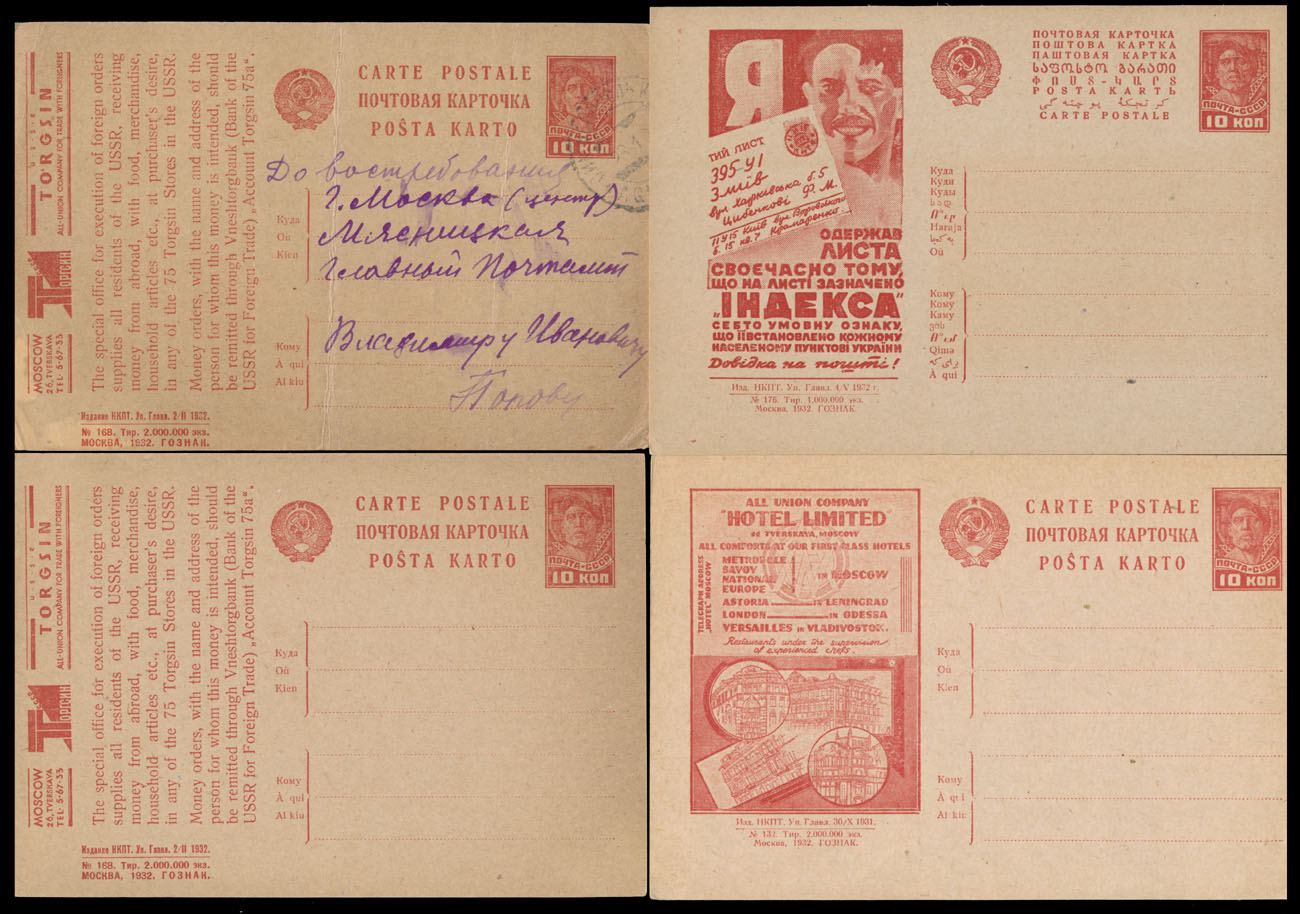 U·S·S·R
TORGSIN
ALL-UNION COMPANY FOR TRADE WITH FOREIGNERS
ТОРГСИН
MOSCOW
26, TVERSKAYA
TEL 5-67-53
The special office for execution of foreign orders
supplies all residents of the USSR, receiving
money from abroad, with food, merchandise,
household articles etc., at purchaser's desire,
in any of the 75 Torgsin Stores in the USSR.
Money orders, with the name and address of the
person for whom this money is intended, should
be remitted through Vneshtorgbank (Bank of the
USSR for Foreign Trade) „Account Torgsin 75a“.
Издание НКПТ. Уп. Главл. 2/II 1932.
№ 168. Тир. 2.000.000 экз.
МОСКВА, 1932. ГОЗНАК.
CARTE POSTALE
ПОЧТОВАЯ КАРТОЧКА
POŜTA KARTO
ПОЧТА-СССР
10 КОП
До востребования
Куда
Où
Kien
г. Москва (центр)
Мясницкая
Главный Почтамт
Кому
À qui
Al kiu
Владимиру Ивановичу
Попову
Я
ТИЙ ЛИСТ
395-У1
Зміїв
вул Харківська б. 5
Цибенкові Ф. М.
11У15 Київ вул Воровського
б. 15 кв. 7 Крамаренко
ОДЕРЖАВ
ЛИСТА
СВОЄЧАСНО ТОМУ,
ЩО НА ЛИСТІ ЗАЗНАЧЕНО
„ІНДЕКСА“
СЕБТО УМОВНУ ОЗНАКУ,
ЩО ЇЇ ВСТАНОВЛЕНО КОЖНОМУ
НАСЕЛЕНОМУ ПУНКТОВІ УКРАЇНИ
Довідка на пошті!
Изд. НКПТ. Уп. Главл. 4/V 1932 г.
№ 176. Тир. 1.000.000 экз.
Москва, 1932. ГОЗНАК
ПОЧТОВАЯ КАРТОЧКА
ПОШТОВА КАРТКА
ПАШТОВАЯ КАРТКА
ᲡᲐᲤᲝᲡᲢᲝ ᲑᲐᲠᲐᲗᲘ
ՓՈՍՏ-ՔԱՐՏ
POSTA KARTЬ
CARTE POSTALE
ПОЧТА-СССР
10 КОП
Куда
Куди
Куды
სად
Haraja
Où
Кому
Кому
Каму
ვის
Qimə
À qui
U·S·S·R
TORGSIN
ALL-UNION COMPANY FOR TRADE WITH FOREIGNERS
ТОРГСИН
MOSCOW
26, TVERSKAYA
TEL 5-67-53
The special office for execution of foreign orders
supplies all residents of the USSR, receiving
money from abroad, with food, merchandise,
household articles etc., at purchaser's desire,
in any of the 75 Torgsin Stores in the USSR.
Money orders, with the name and address of the
person for whom this money is intended, should
be remitted through Vneshtorgbank (Bank of the
USSR for Foreign Trade) „Account Torgsin 75a“.
Издание НКПТ. Уп. Главл. 2/II 1932.
№ 168. Тир. 2.000.000 экз.
МОСКВА, 1932. ГОЗНАК.
CARTE POSTALE
ПОЧТОВАЯ КАРТОЧКА
POŜTA KARTO
ПОЧТА-СССР
10 КОП
Куда
Où
Kien
Кому
À qui
Al kiu
ALL UNION COMPANY
"HOTEL LIMITED"
TVERSKAYA, MOSCOW
ALL COMFORTS AT OUR FIRST CLASS HOTELS
TELEGRAPH ADDRESS
"HOTEL" MOSCOW
METROPOLE
SAVOY
NATIONAL
EUROPE
IN MOSCOW
ASTORIA IN LENINGRAD
LONDON IN ODESSA
VERSAILLES IN VLADIVOSTOK.
Restaurants under the supervision
of experienced chefs.
Изд. НКПТ. Уп. Главл. 30/X 1931.
№ 132. Тир. 2.000.000 экз.
Москва, 1932. ГОЗНАК.
CARTE POSTALE
ПОЧТОВАЯ КАРТОЧКА
POŜTA KARTO
ПОЧТА-СССР
10 КОП
Куда
Où
Kien
Кому
À qui
Al kiu